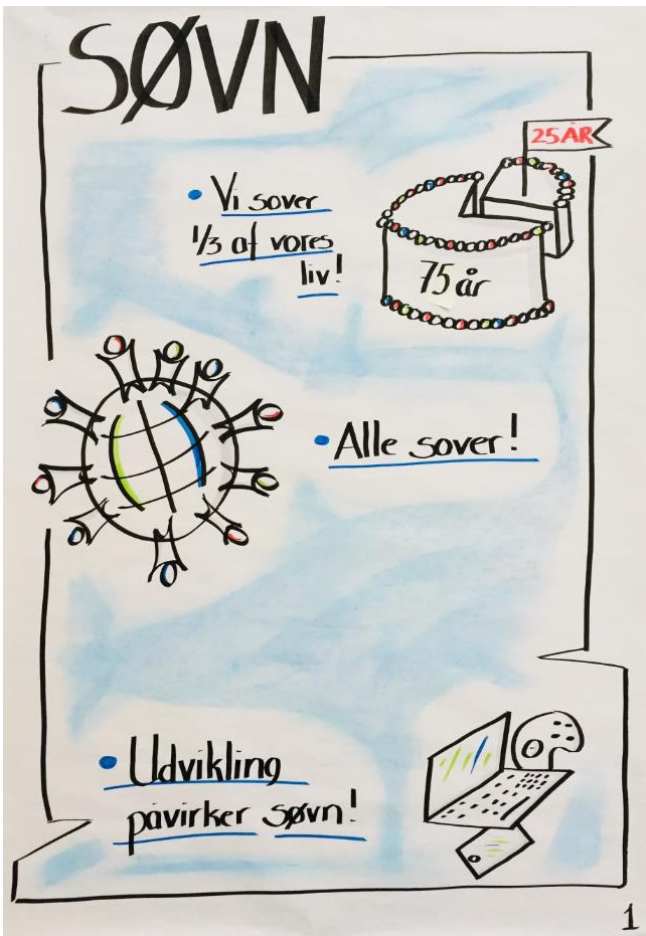 SØVN
25 ÅR
• Vi sover
1/3 af vores
liv!
75 år
• Alle sover!
• Udvikling
påvirker søvn!
1